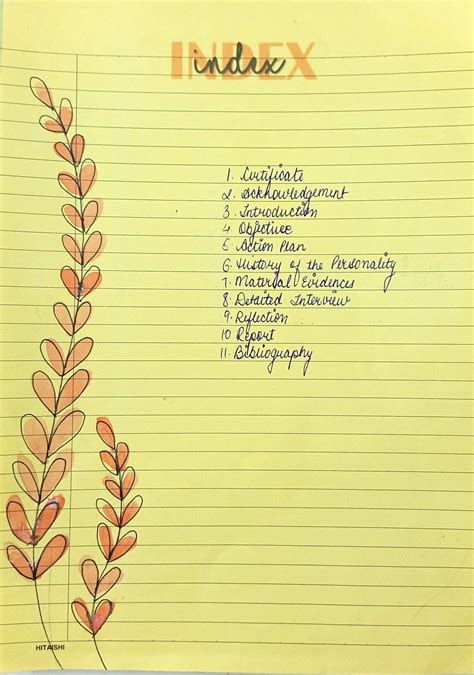 INDEX
index
1. Certificate
2. Acknowledgement
3. Introduction
4. Objective
5. Action Plan
6. History of the Personality
7. Material Evidences
8. Detailed Interview
9. Reflection
10 Report
11. Bibliography
HITAISHI